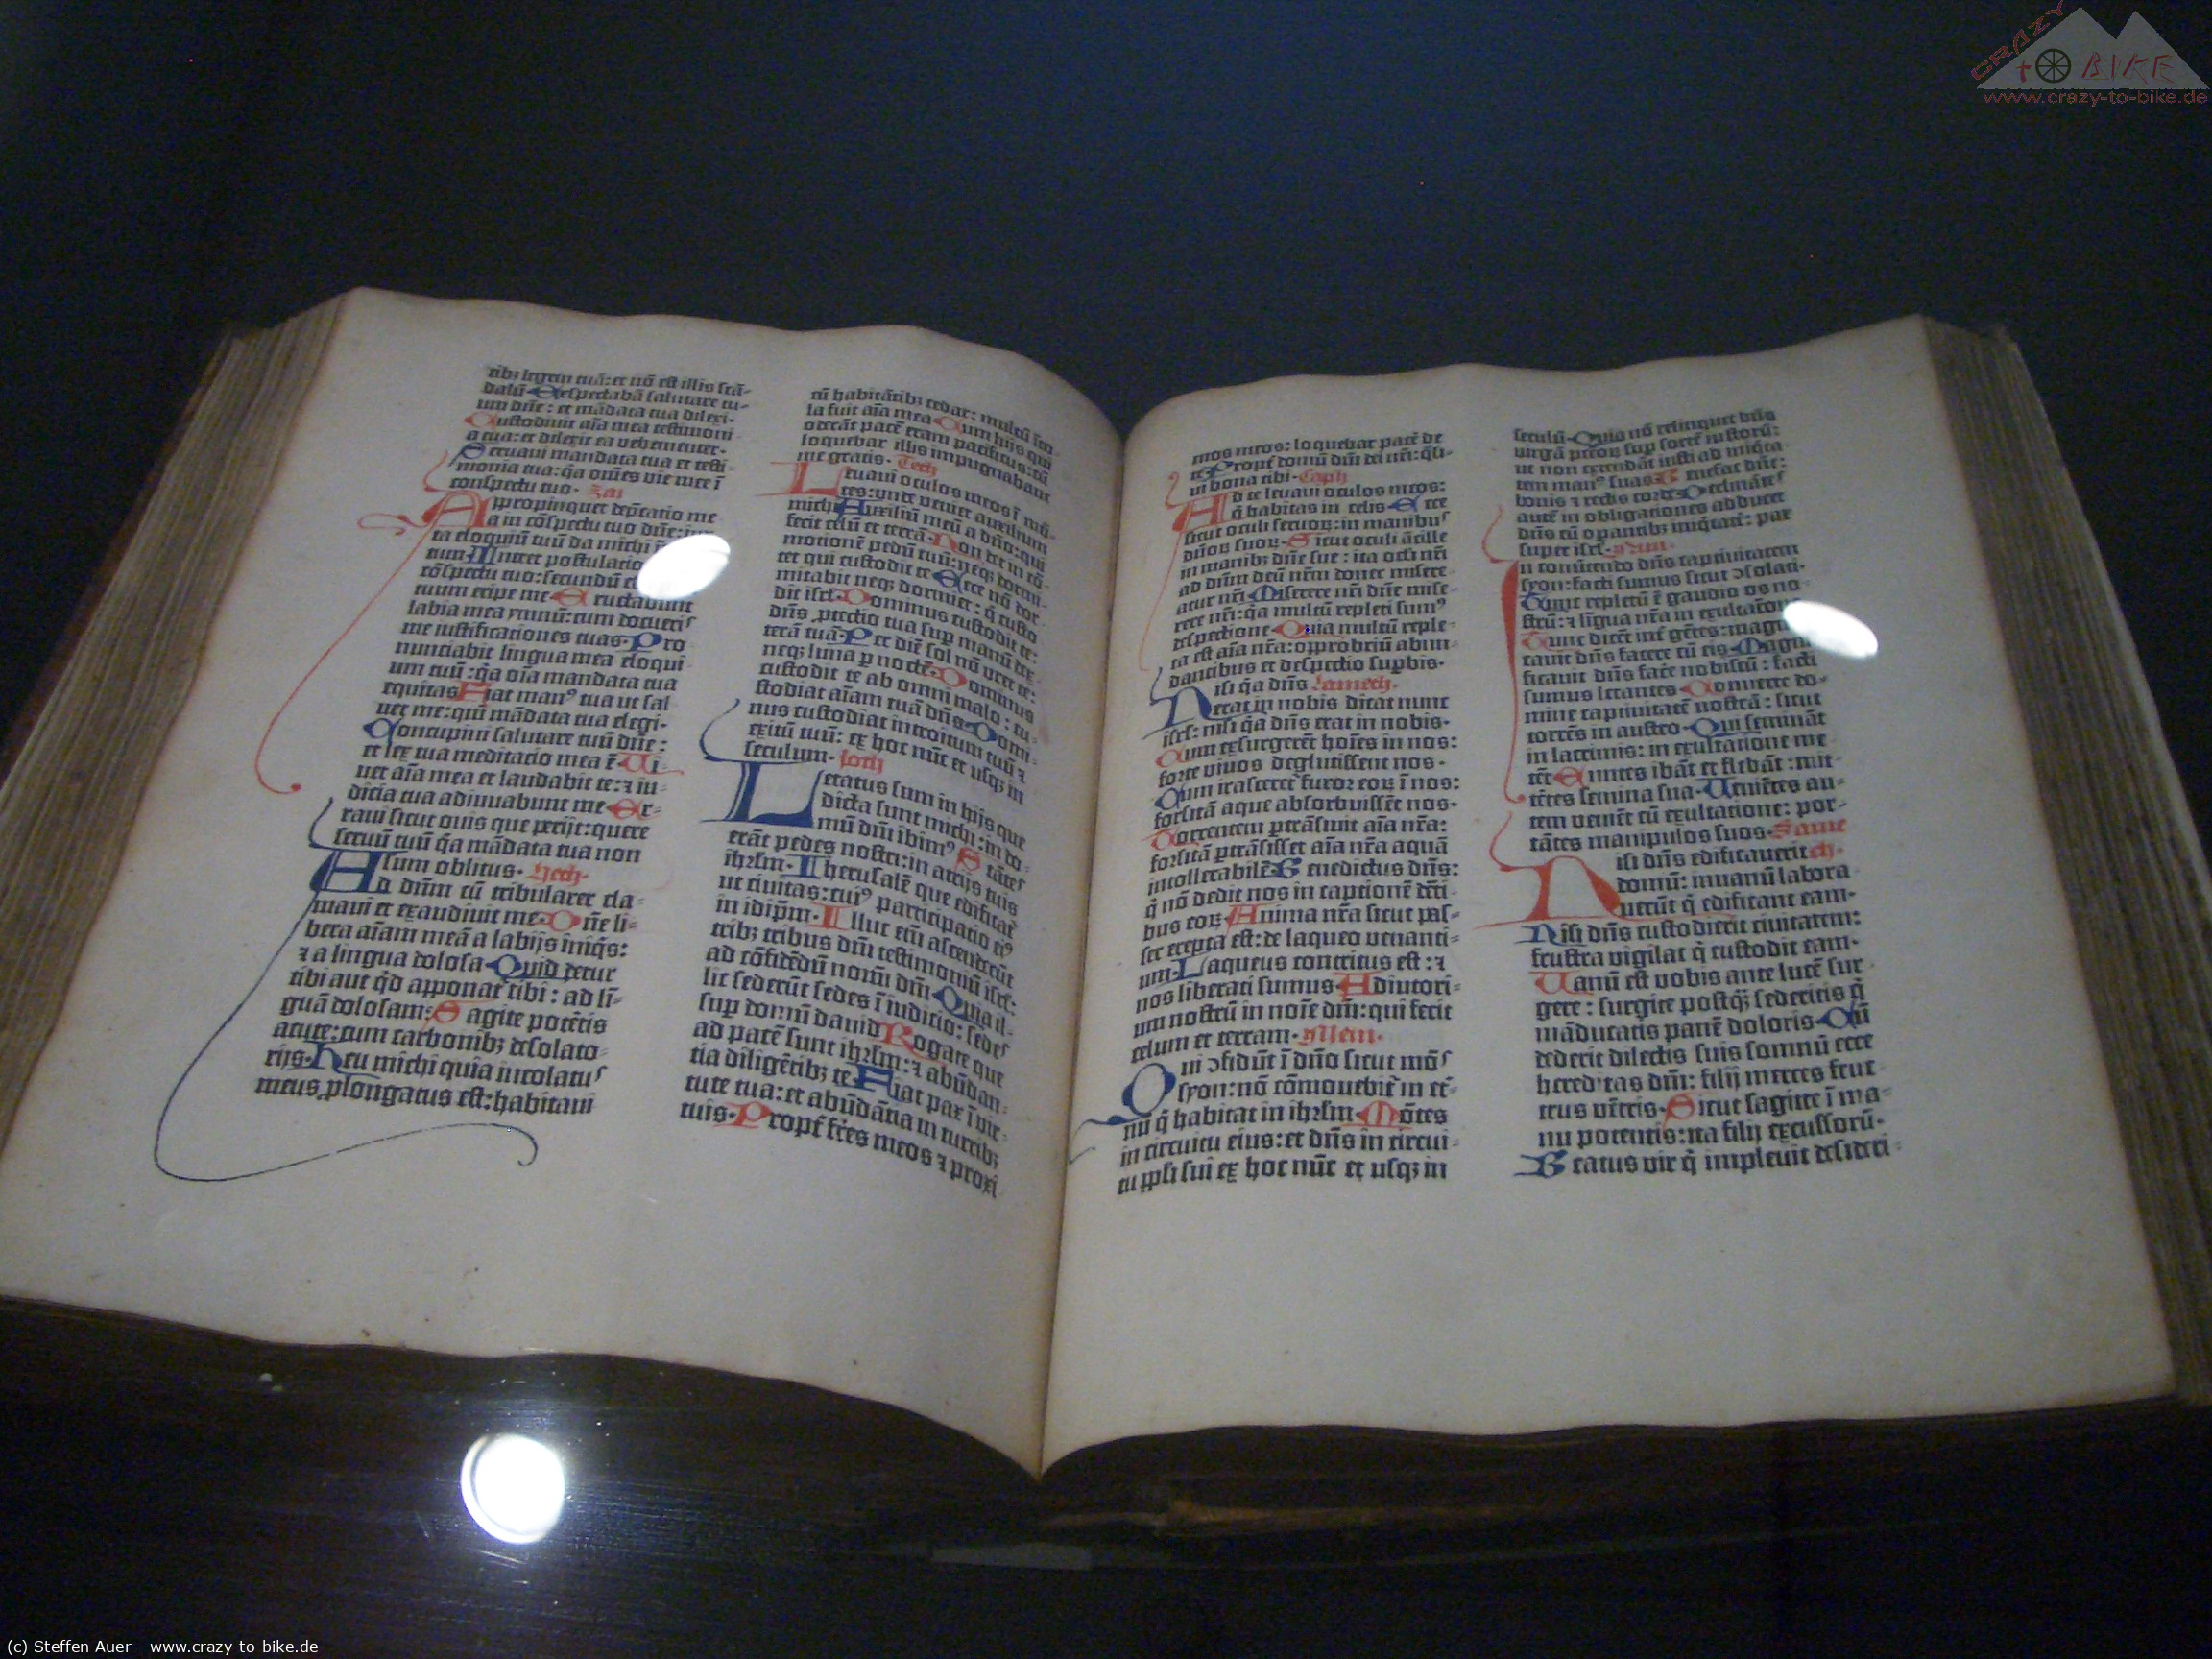 tibz legem tuā: et nō est illis scā-
dalū Exspectabā salutare tu-
um dn̄e: et mādata tua dilexi.
Custodiuit aīa mea testimoni
a tua: et dilexit ea vehementer.
Seruaui mandata tua et testi-
monia tua: q̄a om̄es vie mee ī
conspectu tuo. Zai
Appropinquet dep̄catio me
a in cōspectu tuo dn̄e:
ta eloquiū tuū da michi
tum Intret postulacio
cōspectu tuo: secundū
tuum eripe me Eructabunt
labia mea ymnū: cum docueris
me iustificationes tuas. Pro
nunciabit lingua mea eloqui
um tuū: q̄a oīa mandata tua
equitas Fiat man⁹ tua ut sal
uet me: qm̄ mādata tua elegi.
Concupiui salutare tuū dn̄e:
et lex tua meditacio mea ē. Ui-
uet aīa mea et laudabit te: ⁊ iu-
dicia tua adiuuabunt me Er-
raui sicut ouis que perijt: quere
seruū tuū q̄a mādata tua non
sum oblitus. Hech.
Ad dn̄m cū tribularer cla-
maui et exaudiuit me. Dn̄e li-
bera aīam meā a labijs īniq̄s:
⁊ a lingua dolosa Quid detur
tibi aut q̄d apponat̄ tibi: ad lī-
guā dolosam: Sagitte potētis
acute: cum carbonibz desolato-
rijs. Heu michi quia incolatus
meus ꝓlongatus est: habitaui
cū habitātibz cedar: multū īco
la fuit aīa mea Cum hijs qui
oderāt pacē eram pacificus: cū
loquebar illis impugnabant
me gratis. Tech
Leuaui oculos meos ī mō-
tes: vnde veniet auxilium
michi Auxiliū meū a dn̄o: qui
fecit celū et terrā. Non det in cō-
motionē pedū tuū: neqz dormi-
tet qui custodit te Ecce nō dor-
mitabit neqz dormiet: q̄ custo
dit isrl. Dominus custodit te:
dn̄s ꝓtectio tua sup manū dex-
terā tuā. Per diē sol nō vret te:
neqz luna ꝑ noctē. Dominus
custodit te ab omni malo: cu-
stodiat aīam tuā dn̄s. Domi-
nus custodiat introitum tuū ⁊
exitū tuū: ex hoc nūc et usqz in
seculum. Joth
Letatus sum in hijs que
dicta sunt michi: in do-
mū dn̄i ibim⁹ Stātes
erāt pedes nostri: in atrijs tuis
ihrlm. Iherusalē que edificat̄
ut ciuitas: cui⁹ participatio ei⁹
in idip̄m. Illuc em̄ ascenderūt
tribz tribus dn̄i testimoniū isrl:
ad cōfitēdū nom̄i dn̄i Quia il-
lic sederūt sedes ī iudicio: sedes
sup domū dauid Rogate que
ad pacē sunt ihrlm: ⁊ abūdan-
tia diligētibz te Fiat pax ī vir-
tute tua: et abūdātia in turribz
tuis. Propt̄ fr̄es meos ⁊ proxi
mos meos: loquebar pacē de
te Propt̄ domū dn̄i dei nr̄i: q̄si-
ui bona tibi. Caph
Ad te leuaui oculos meos:
q̄ habitas in celis Ecce
sicut oculi seruoꝝ: in manibus
dn̄oꝝ suoꝝ. Sicut oculi ācille
in manibz dn̄e sue: ita ocli nr̄i
ad dn̄m deū nr̄m donec misere-
atur nr̄i Miserere nr̄i dn̄e mise-
rere nr̄i: q̄a multū repleti sum⁹
despectione Quia multū reple-
ta est aīa nr̄a: opprobriū abun-
dantibus et despectio supbis.
Nisi q̄a dn̄s Lamech.
erat in nobis dicat nunc
isrl: nisi q̄a dn̄s erat in nobis.
Cum exsurgerēt hoīes in nos:
forte viuos deglutissent nos.
Cum irasceret̄ furor eoꝝ ī nos:
forsitā aque absorbuissēt nos.
Torrentem ꝑtrāsiuit aīa nr̄a:
forsitā ꝑtrāsisset aīa nr̄a aquā
intollerabilē Benedictus dn̄s:
q̄ nō dedit nos in captionē dēti
bus eoꝝ Anima nr̄a sicut pas-
ser erepta est: de laqueo venanti-
um. Laqueus contritus est: ⁊
nos liberati sumus Adiutori-
um nostrū in noīe dn̄i: qui fecit
celum et terram. Mem.
Qui ↄfidūt ī dn̄o sicut mōs
syon: nō cōmouebit̄ in et̄-
nū q̄ habitat in ihrlm Mōtes
in circuitu eius: et dn̄s in circui-
tu pp̄li sui ex hoc nūc et usqz in
seculū. Quia nō relinquet dn̄s
virgā pctoꝝ sup sortē iustorū:
ut non extendāt iusti ad iniq̄ta-
tem man⁹ suas Benefac dn̄e:
bonis ⁊ rectis corde. Declinātes
autē in obligationes adducet
dn̄s cū operantibz iniq̄tatē: pax
super isrl. Nun.
In conuertendo dn̄s captiuitatem
syon: facti sumus sicut ↄsolati.
Tunc repletū ē gaudio os no-
strū: ⁊ līgua nr̄a in exultatōne
Tunc dicēt int̄ gētes: magni
cauit dn̄s facere cū eis. Magni
ficauit dn̄s fac̄e nobiscū: facti
sumus letantes Conuerte do-
mine captiuitatē nostrā: sicut
torrēs in austro. Qui semināt
in lacrimis: in exultatione me-
tēt Euntes ibāt et flebāt: mit-
tētes semina sua. Uenientes au-
tem veniēt cū exultatione: por-
tātes manipulos suos. Same
Nisi dn̄s edificauerit ch.
domū: in uanū labora-
uerūt q̄ edificant eam.
Nisi dn̄s custodierit ciuitatem:
frustra vigilat q̄ custodit eam.
Uanū est vobis ante lucē sur-
gere: surgite postq̄ꝫ sederitis q̄
māducatis panē doloris. Cū
dederit dilectis suis somnū ecce
hereditas dn̄i: filij merces fruc-
tus vētris. Sicut sagitte ī ma-
nu potentis: ita filij excussorū.
Beatus vir q̄ impleuit desideri-
CRAZY
to BIKE
www.crazy-to-bike.de
(c) Steffen Auer - www.crazy-to-bike.de